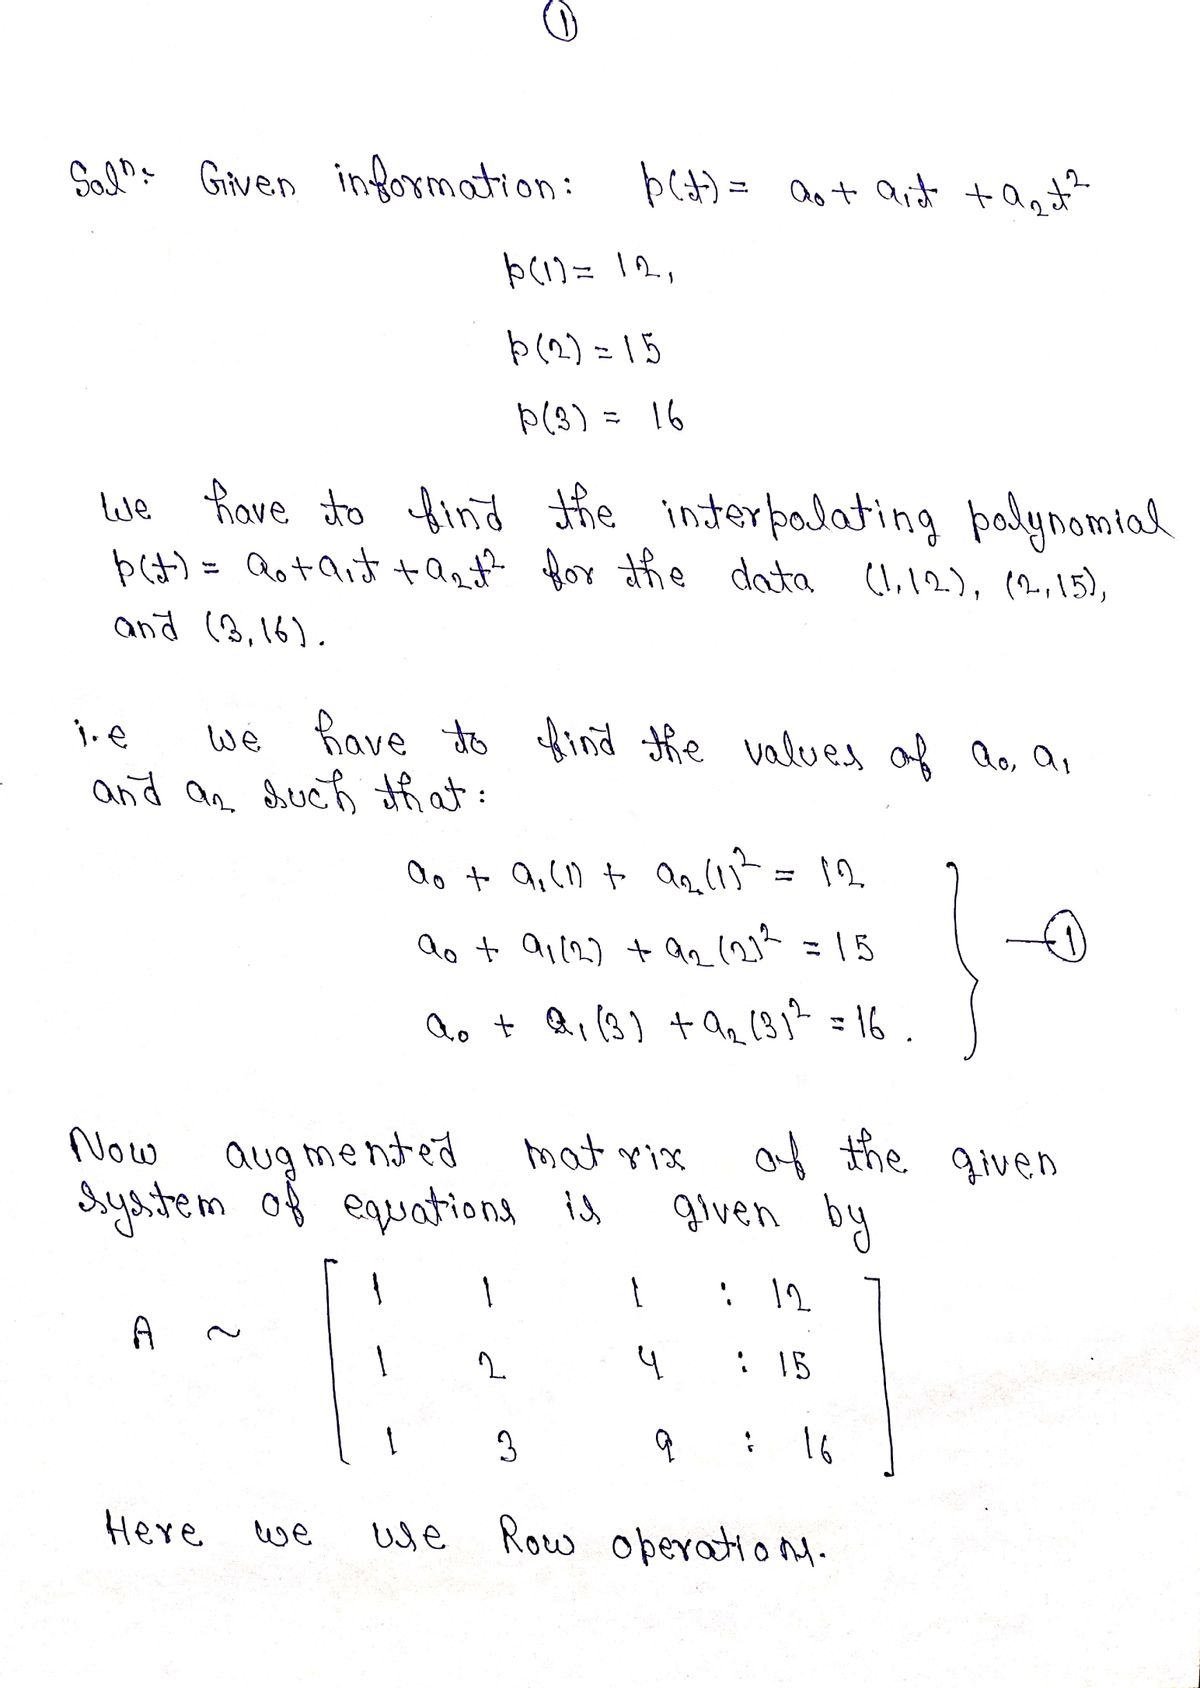 ①
Solⁿ: Given information: p(t) = a₀ + a₁t + a₂t²
p(1) = 12,
p(2) = 15
p(3) = 16
we have to find the interpolating polynomial
p(t) = a₀ + a₁t + a₂t² for the data (1,12), (2,15),
and (3,16).
i.e we have to find the values of a₀, a₁
and a₂ such that:
a₀ + a₁(1) + a₂(1)² = 12
a₀ + a₁(2) + a₂(2)² = 15 } —①
a₀ + a₁(3) + a₂(3)² = 16.
Now augmented matrix of the given
system of equations is given by
1 1 1 : 12
A ~ [ 1 2 4 : 15 ]
1 3 9 : 16
Here we use Row operations.